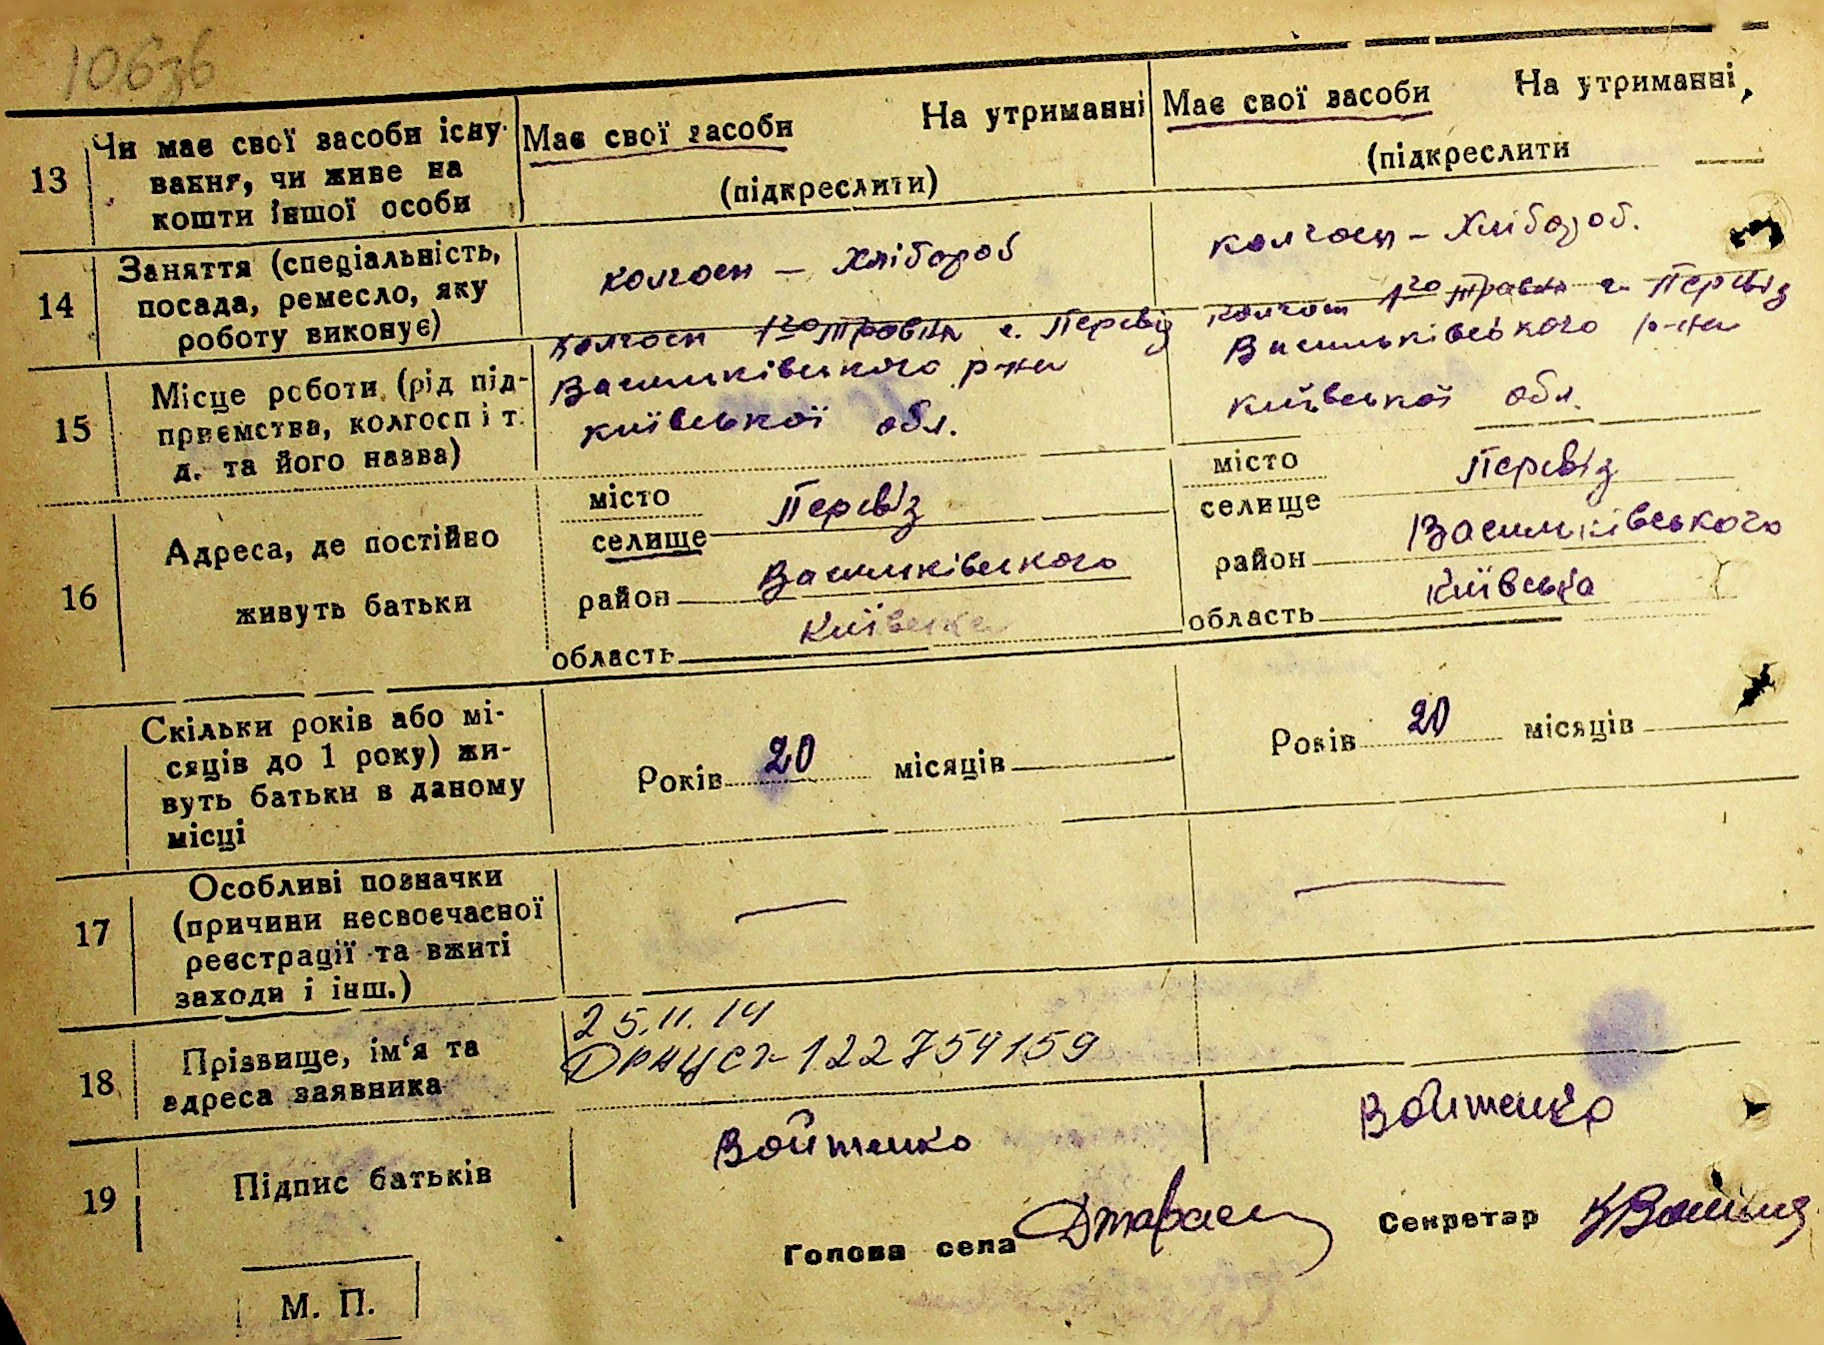 106зв
13 Чи має свої засоби існу-
вання, чи живе на
кошти іншої особи
Має свої засоби На утриманні
(підкреслити)
Має свої засоби На утриманні,
(підкреслити
14 Заняття (спеціальність,
посада, ремесло, яку
роботу виконує)
колгосп – Хлібороб
колгосп – Хлібороб.
15 Місце роботи (рід під-
приємства, колгосп і т.
д. та його назва)
колгосп 1го травня с. Перевіз
Васильківського р-ну
Київської обл.
колгосп 1го травня с. Перевіз
Васильківського р-ну
Київської обл.
16 Адреса, де постійно
живуть батьки
місто
селище Перевіз
район Васильківського
область Київська
місто
селище Перевіз
район Васильківського
область Київська
Скільки років або мі-
сяців до 1 року) жи-
вуть батьки в даному
місці
Років 20 місяців
Років 20 місяців
17 Особливі позначки
(причини несвоєчасної
реєстрації та вжиті
заходи і інш.)
18 Прізвище, ім'я та
адреса заявника
25.11.14
ДРАЦСГ-122754159
19 Підпис батьків
Войтенко
Войтенко
Голова села
Секретар
М. П.